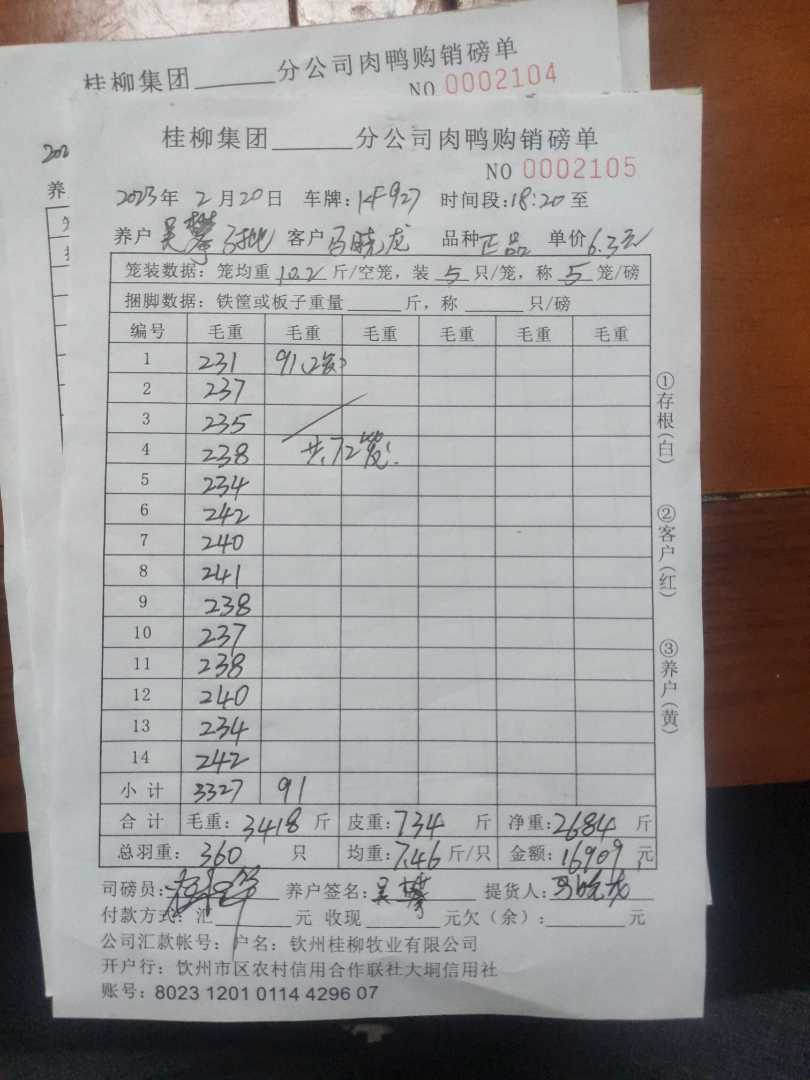 桂柳集团______分公司肉鸭购销磅单
NO 0002104
202
养
桂柳集团______分公司肉鸭购销磅单
NO 0002105
2023年 2月20日 车牌: 时间段:18:20至
养户 吴攀 客户 马晓龙 品种 正品 单价 6.3元
笼装数据：笼均重 10.2 斤/空笼，装 5 只/笼，称 5 笼/磅
捆脚数据：铁筐或板子重量______斤，称______只/磅
编号 毛重 毛重 毛重 毛重 毛重 毛重
1 231 91(2笼)
2 237
3 235
4 238 共72笼
5 234
6 242
7 240
8 241
9 238
10 237
11 238
12 240
13 234
14 242
小计 3327 91
合计 毛重: 3418 斤 皮重: 734 斤 净重: 2684 斤
总羽重: 360 只 均重: 7.46 斤/只 金额: 16909 元
司磅员: 养户签名: 吴攀 提货人: 马晓龙
付款方式: 汇______元 收现______元欠(余):______元
公司汇款帐号: 户名: 钦州桂柳牧业有限公司
开户行: 钦州市区农村信用合作联社大垌信用社
账号: 8023 1201 0114 4296 07
①存根(白)
②客户(红)
③养户(黄)